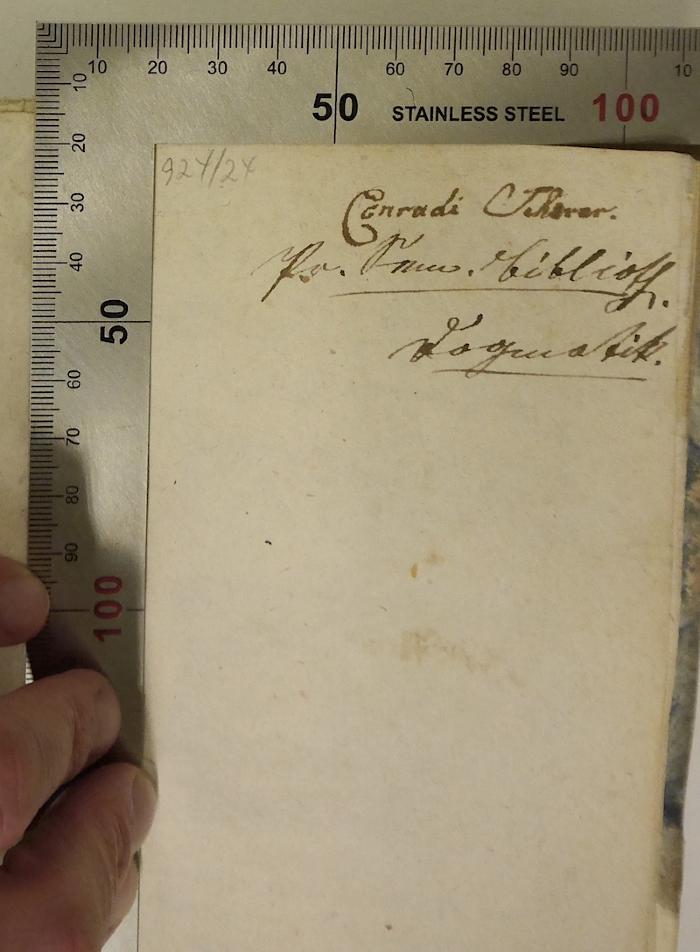 10 20 30 40 60 70 80 90 10
50 STAINLESS STEEL 100
10
20
30
40
50
60
70
80
90
100
924/24
Conradi Scherer.
Dogmatik.